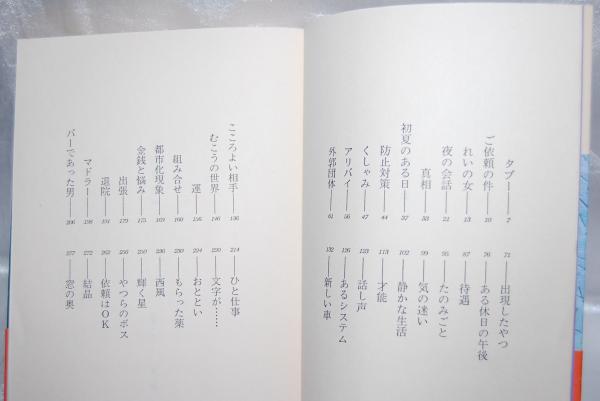 タブー――7
ご依頼の件――10
れいの女――13
夜の会話――21
真相――33
初夏のある日――37
防止対策――44
くしゃみ――47
アリバイ――56
外郭団体――61
71――出現したやつ
76――ある休日の午後
87――待遇
95――たのみごと
99――気の迷い
102――静かな生活
113――才能
123――話し声
126――あるシステム
132――新しい車
こころよい相手――136
むこうの世界――146
運――156
組み合せ――160
都市化現象――169
金銭と悩み――175
出張――179
退院――191
マドラー――198
バーであった男――206
214――ひと仕事
220――文字が……
224――おととい
230――もらった薬
236――西風
250――輝く星
256――やつらのボス
262――依頼はOK
272――結晶
277――窓の奥